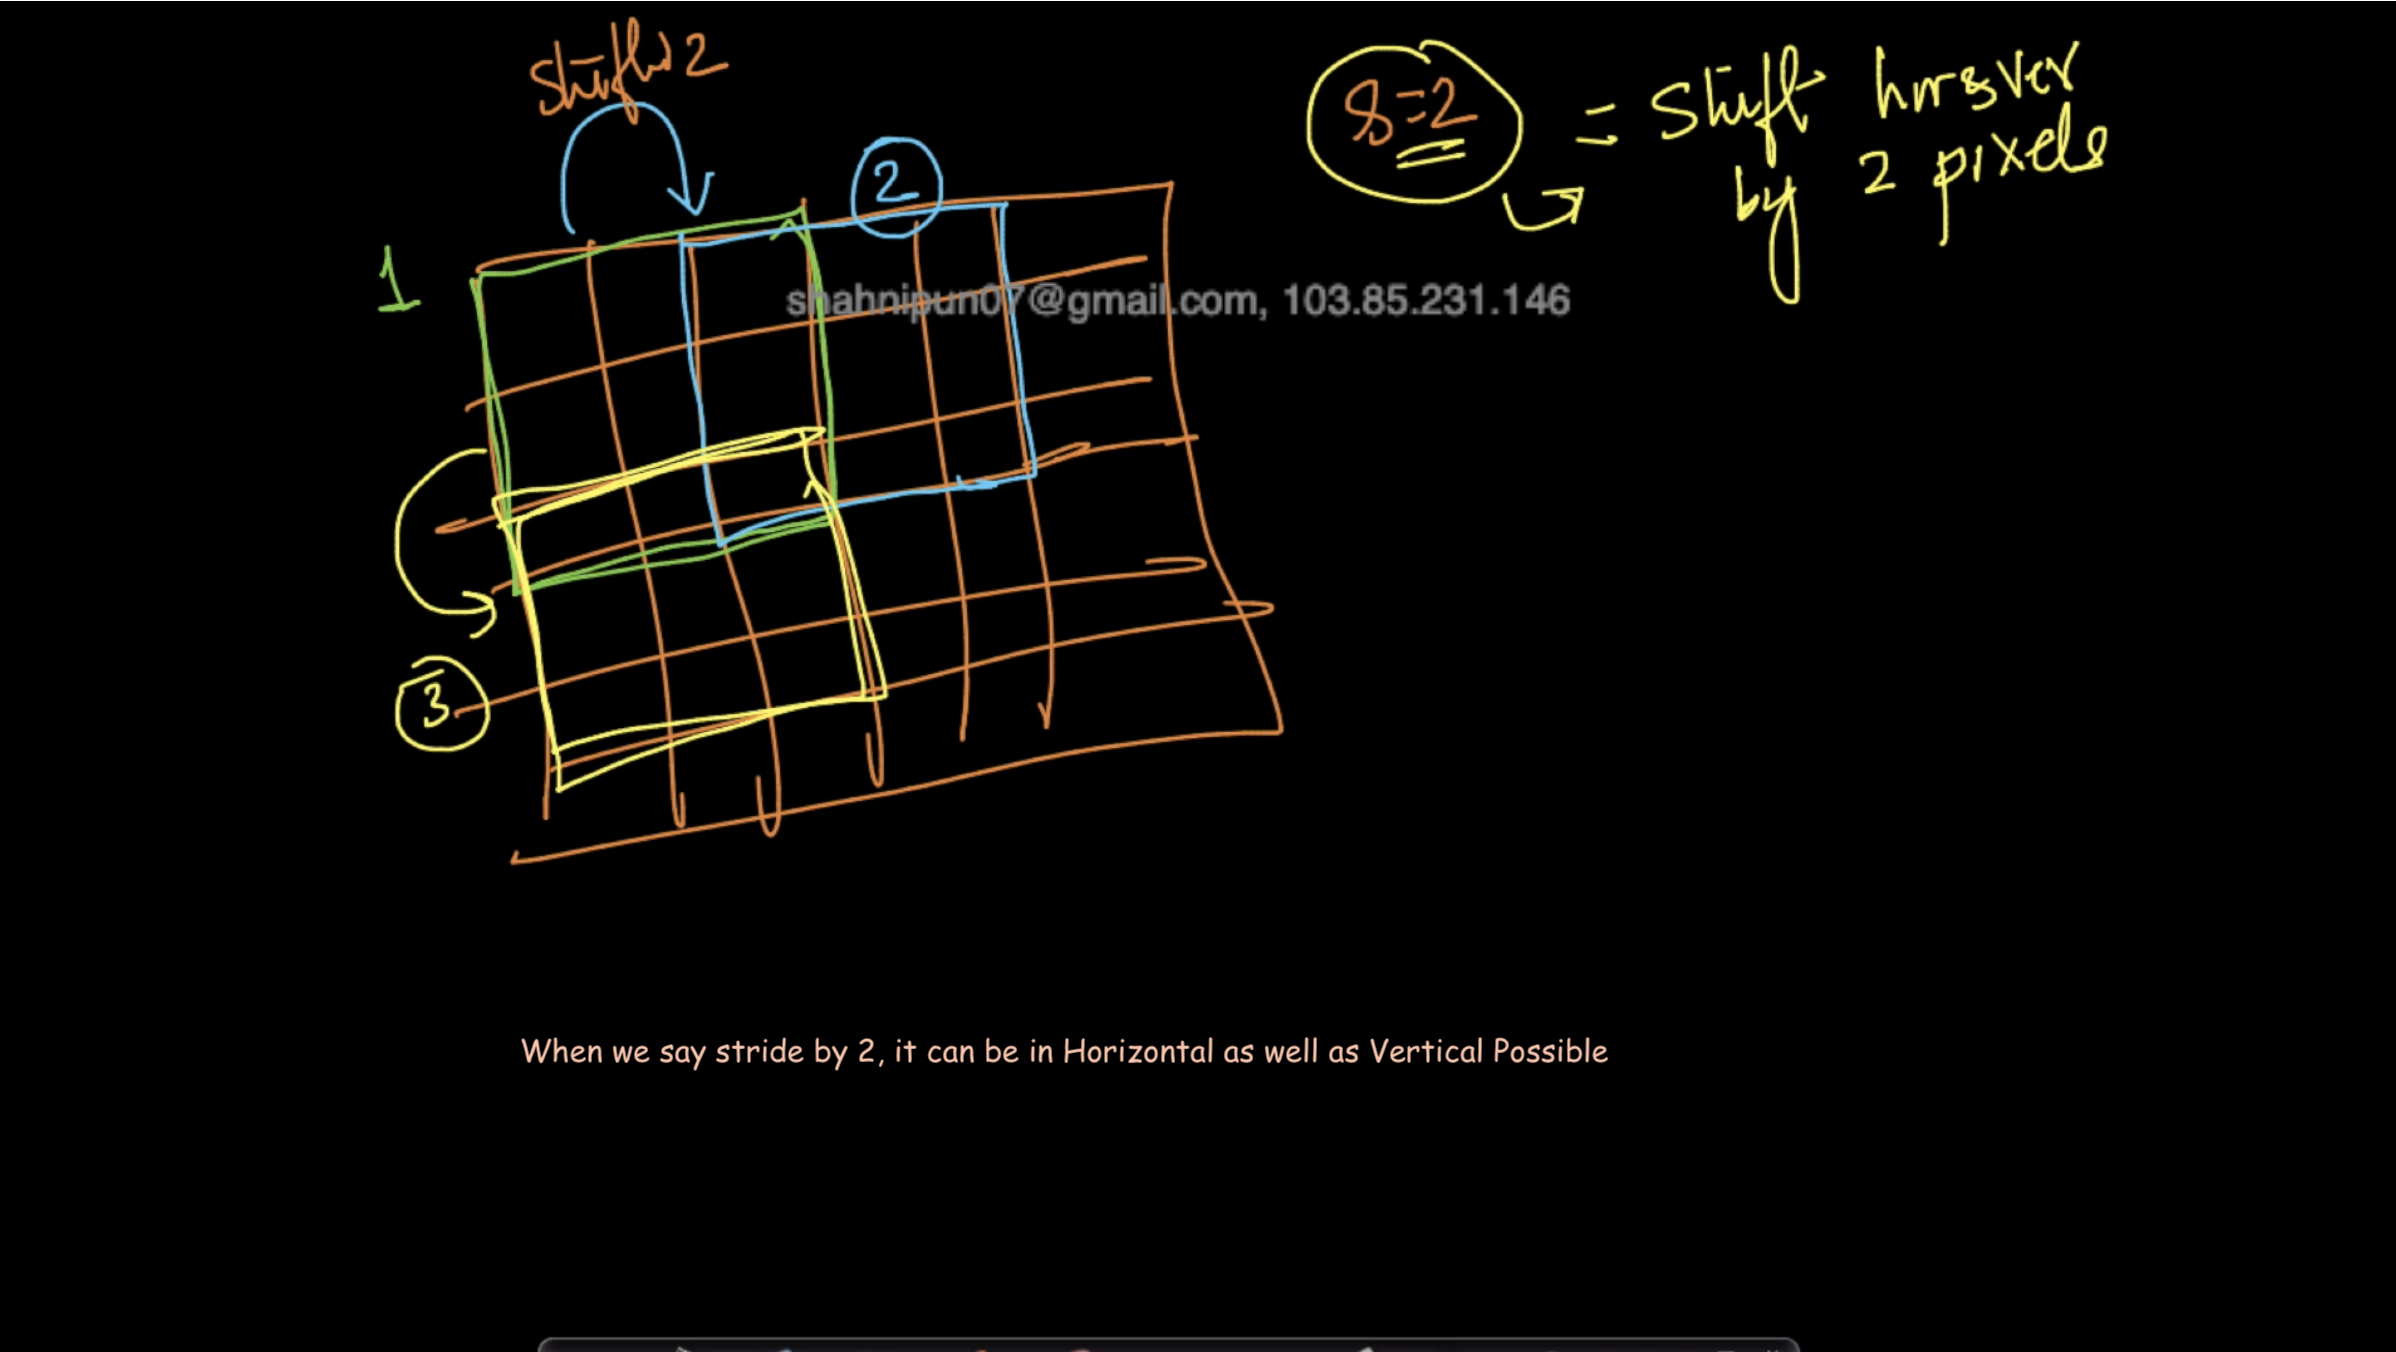 Shift 2
S=2 = Shift hor & ver
by 2 pixels
2
1
shahnipun07@gmail.com, 103.85.231.146
3
When we say stride by 2, it can be in Horizontal as well as Vertical Possible